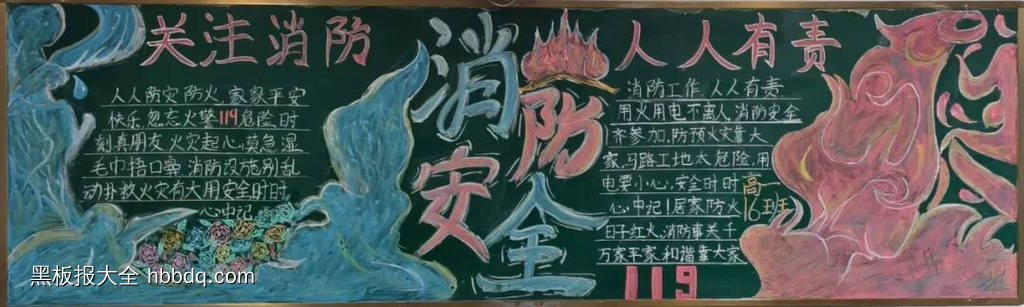 关注消防
人人防灾防火,家家平安
快乐,忽忘火警119危险时
刻真朋友,火灾起心,莫急湿
毛巾捂口鼻,消防设施别乱
动扑救火灾有大用安全时时
心中记
消防
安全
人人有责
消防工作,人人有责
用火用电不离人消防安全
齐参加,防预火灾靠大
家,马路工地太危险,用
电要小心,安全时时
心中记!居家防火
日子红火,消防事关千
万家平家和谐靠大家
高一
16班
119
黑板报大全 hbbdq.com